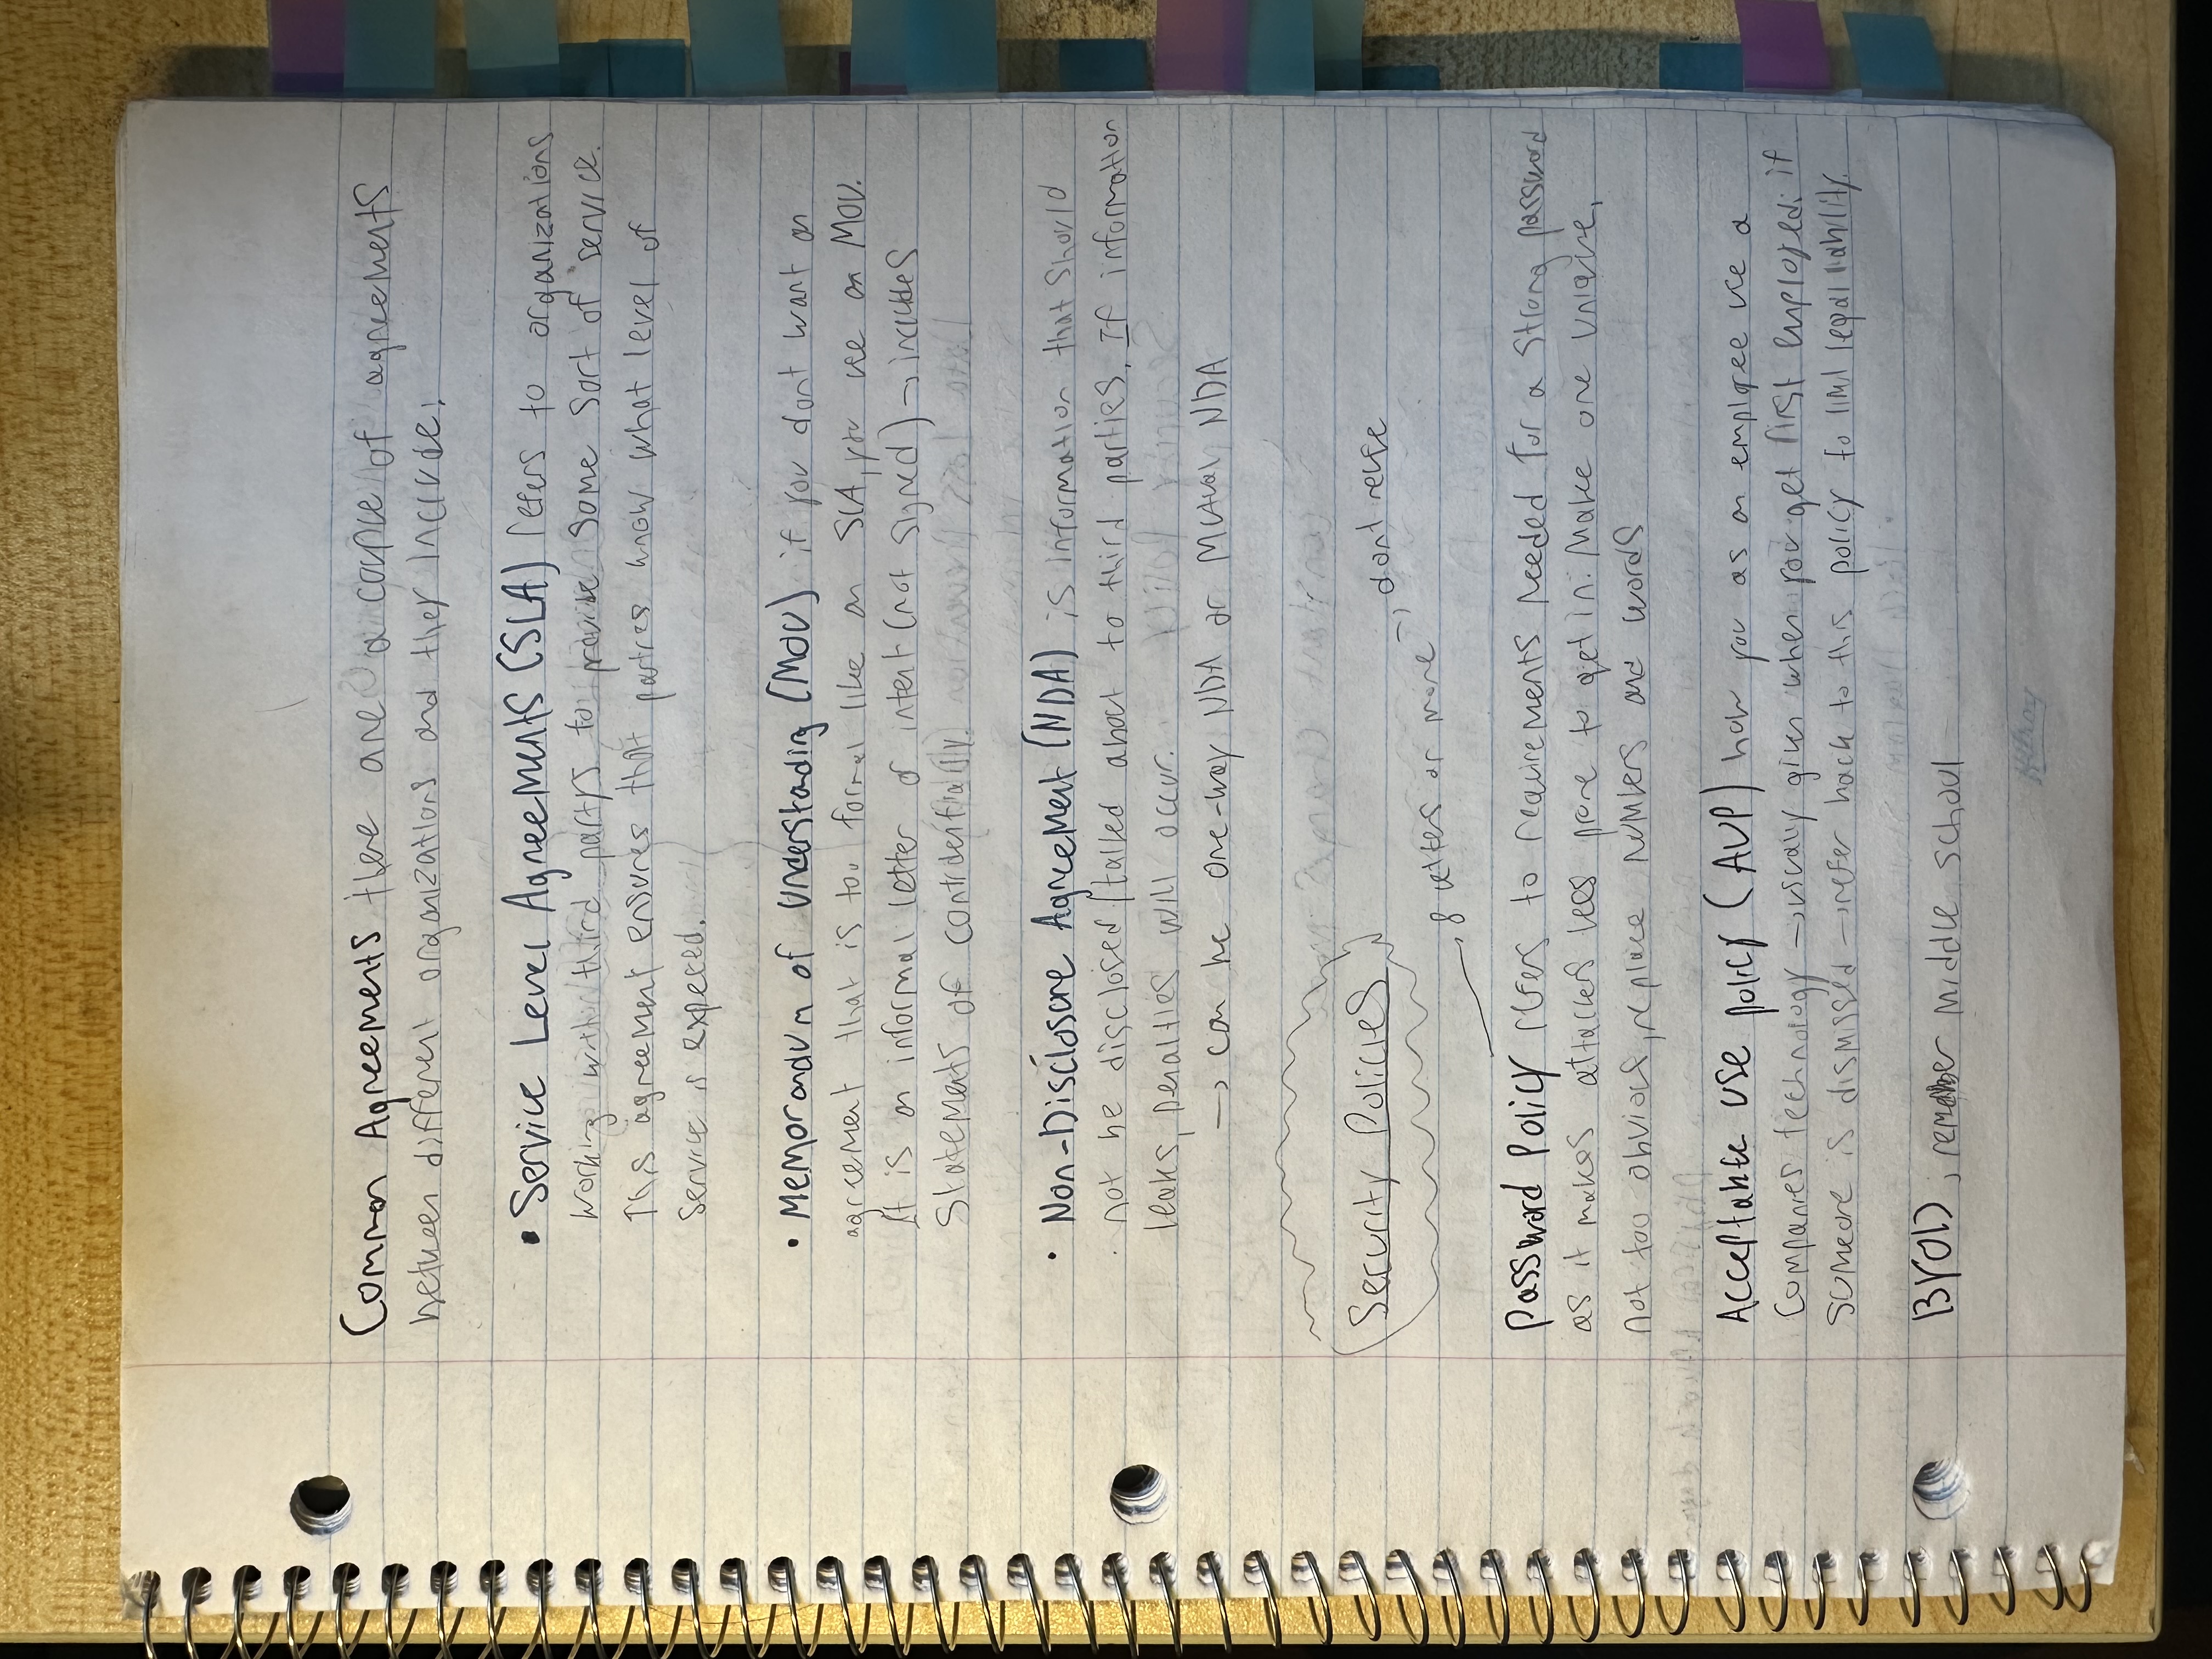 Common Agreements there are a couple of agreements
between different organizations and they include:
• Service Level Agreements (SLA) refers to organizations
working with third partys to provide some sort of service.
This agreement ensures that parties know what level of
service is expeced.
• Memorandum of Understading (MOU) if you dont want an
agreement that is too formal like an SLA, you use an MOU.
It is an informal letter of intent (not signed) → includes
statements of confidentiality.
• Non-Disclosure Agreement (NDA) is information that should
not be disclosed/talked about to third parties. If information
leaks, penalties will occur.
→ can be one-way NDA or Mutual NDA
Security Policies
→ 8 letters or more → dont reuse
Password Policy refers to requirements needed for a strong password
as it makes attackers less prone to get in. Make one unique,
not too obvious, replace numbers and words
Acceptable Use policy (AUP) how you as an employee use a
Companies technology → usually given when you get first employed. if
someone is dismissed → refer back to this policy to limit legal liability.
BYOD, remember middle school
Hilroy